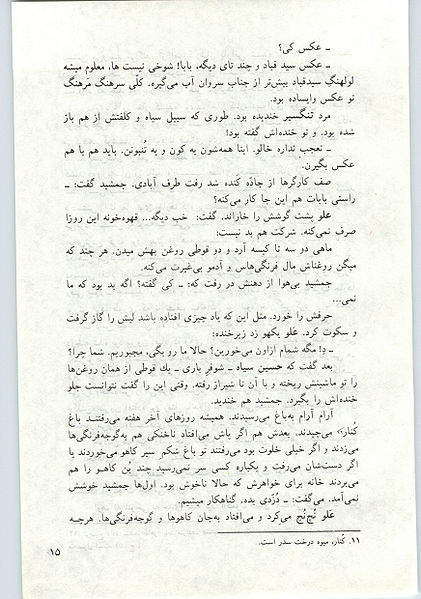 ـ عکس کی؟
ـ عکس سید قباد و چند تای دیگه، بابا! شوخی نیست ها، معلوم میشه
لولهنگ سیدقباد بیش‌تر از جناب سروان آب می‌گیره. کلّی سرهنگ مَرهنگ
تو عکس وایساده بود.
مرد تنگسیر خندیده بود. طوری که سبیل سیاه و کلفتش از هم باز
شده بود. و تو خنده‌اش گفته بود!
ـ تعجب نداره خالو. اینا همه‌شون یه کون و یه تُنبونن. باید هم با هم
عکس بگیرن.
صف کارگرها از جادّه کنده شد رفت طرف آبادی. جمشید گفت: ـ
راستی بابات هم این جا کار می‌کنه؟
علو پشت گوشش را خاراند. گفت: خب دیگه... قهوه‌خونه این روزا
صرف نمی‌کنه. شرکت هم بد نیست:
ماهی دو سه تا کیسه آرد و دو قوطی روغن بهش میدن. هر چند که
میگن روغناش مال فرنگی‌هاس و آدمو بی‌غیرت می‌کنه.
جمشید بی‌هوا از دهنش در رفت که: ـ کی گفته؟ اگه بد بود که ما
نمی...
حرفش را خورد. مثل این که یاد چیزی افتاده باشد لبش را گاز گرفت
و سکوت کرد. علو یکهو زد زیرخنده:
ـ دِ! مگه شمام ازاون می‌خورین؟ حالا ما رو بگی، مجبوریم. شما چرا؟
بعد گفت که حسین سیاه ـ شوفرِ باری ـ یك قوطی از همان روغن‌ها
را تو ماشینش ریخته و با آن تا شیراز رفته. وقتی این را گفت نتوانست جلو
خنده‌اش را بگیرد. جمشید هم خندید.
آرام آرام به‌باغ می‌رسیدند. همیشه روزهای آخر هفته می‌رفتند باغ
کُنار¹¹ می‌چیدند. بعدش هم اگر پاش می‌افتاد ناخنکی هم به‌گوجه‌فرنگی‌ها
می‌زدند و اگر خیلی خلوت بود می‌رفتند تو باغ شکم سیر کاهو می‌خوردند یا
اگر دست‌شان می‌رفت و یکباره کسی سر نمی‌رسید چند بُن کاهو را هم
می‌بردند خانه برای خواهرش که حالا ناخوش بود. اول‌ها جمشید خوشش
نمی‌آمد. می‌گفت: ـ دُزدی بده. گناهکار میشیم.
علو نُچ‌نُچ می‌کرد و می‌افتاد به‌جان کاهوها و گوجه‌فرنگی‌ها. هرچه
۱۱. کُنار، میوه درخت سدر است.
۱۵